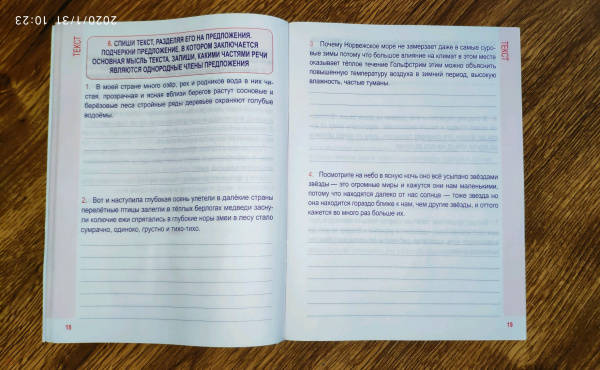 10:23 2020/1/31
ТЕКСТ
6. СПИШИ ТЕКСТ, РАЗДЕЛЯЯ ЕГО НА ПРЕДЛОЖЕНИЯ.
ПОДЧЕРКНИ ПРЕДЛОЖЕНИЕ, В КОТОРОМ ЗАКЛЮЧАЕТСЯ
ОСНОВНАЯ МЫСЛЬ ТЕКСТА. ЗАПИШИ, КАКИМИ ЧАСТЯМИ РЕЧИ
ЯВЛЯЮТСЯ ОДНОРОДНЫЕ ЧЛЕНЫ ПРЕДЛОЖЕНИЯ
1. В моей стране много озёр, рек и родников вода в них чи-
стая, прозрачная и ясная вблизи берегов растут сосновые и
берёзовые леса стройные ряды деревьев охраняют голубые
водоёмы.
2. Вот и наступила глубокая осень улетели в далёкие страны
перелётные птицы залегли в тёплых берлогах медведи засну-
ли колючие ежи спрятались в глубокие норы змеи в лесу стало
сумрачно, одиноко, грустно и тихо-тихо.
18
ТЕКСТ
3. Почему Норвежское море не замерзает даже в самые суро-
вые зимы потому что большое влияние на климат в этом месте
оказывает тёплое течение Гольфстрим этим можно объяснить
повышенную температуру воздуха в зимний период, высокую
влажность, частые туманы.
4. Посмотрите на небо в ясную ночь оно всё усыпано звёздами
звёзды — это огромные миры и кажутся они нам маленькими,
потому что находятся далеко от нас солнце — тоже звезда но
она находится гораздо ближе к нам, чем другие звёзды, и оттого
кажется во много раз больше их.
19